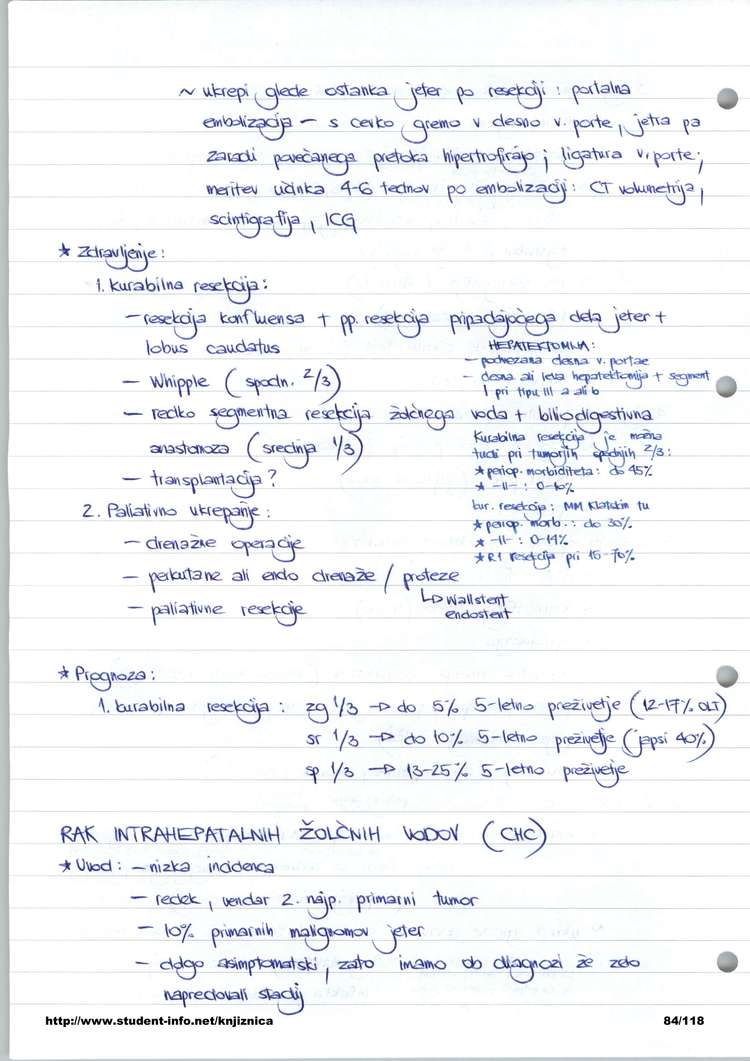 ~ ukrepi glede ostanka jeter po resekciji : portalna
embolizacija – s cevko gremo v desno v. porte, jetra pa
zaradi povečanega pretoka hipertrofirajo ; ligatura v. porte ;
meritev učinka 4-6 tednov po embolizaciji : CT volumetrija,
scintigrafija, ICG
* Zdravljenje :
1. kurabilna resekcija :
– resekcija konfluensa + pp. resekcija pripadajočega dela jeter +
lobus caudatus
HEPATEKTOMIJA :
– podvezana desna v. portae
– desna ali leva hepatektomija + segment
1 pri tipu III a ali b
– Whipple ( spodn. 2/3 )
– redko segmentna resekcija žolčnega voda + biliodigestivna
anastomoza ( srednja 1/3 )
Kurabilna resekcija je možna
tudi pri tumorjih spodnjih 2/3 :
* periop. morbiditeta : do 45%
* –||– : 0-10%
– transplantacija ?
2. Paliativno ukrepanje :
kur. resekcija : MM Klatskin tu
* periop. morb. : do 30%
* –||– : 0-14%
* R1 resekcija pri 15-70%
– drenažne operacije
– perkutane ali endo drenaže / proteze
↳ wallstent
endostent
– paliativne resekcije
* Prognoza :
1. kurabilna resekcija : zg 1/3 → do 5% 5-letno preživetje ( 12-17% OLT )
sr 1/3 → do 10% 5-letno preživetje ( japsi 40% )
sp 1/3 → 13-25% 5-letno preživetje
RAK INTRAHEPATALNIH ŽOLČNIH VODOV ( CHC )
* Uvod : – nizka incidenca
– redek, vendar 2. najp. primarni tumor
– 10% primarnih malignomov jeter
– dolgo asimptomatski, zato imamo ob diagnozi že zelo
napredovali stadij
http://www.student-info.net/knjiznica 84/118